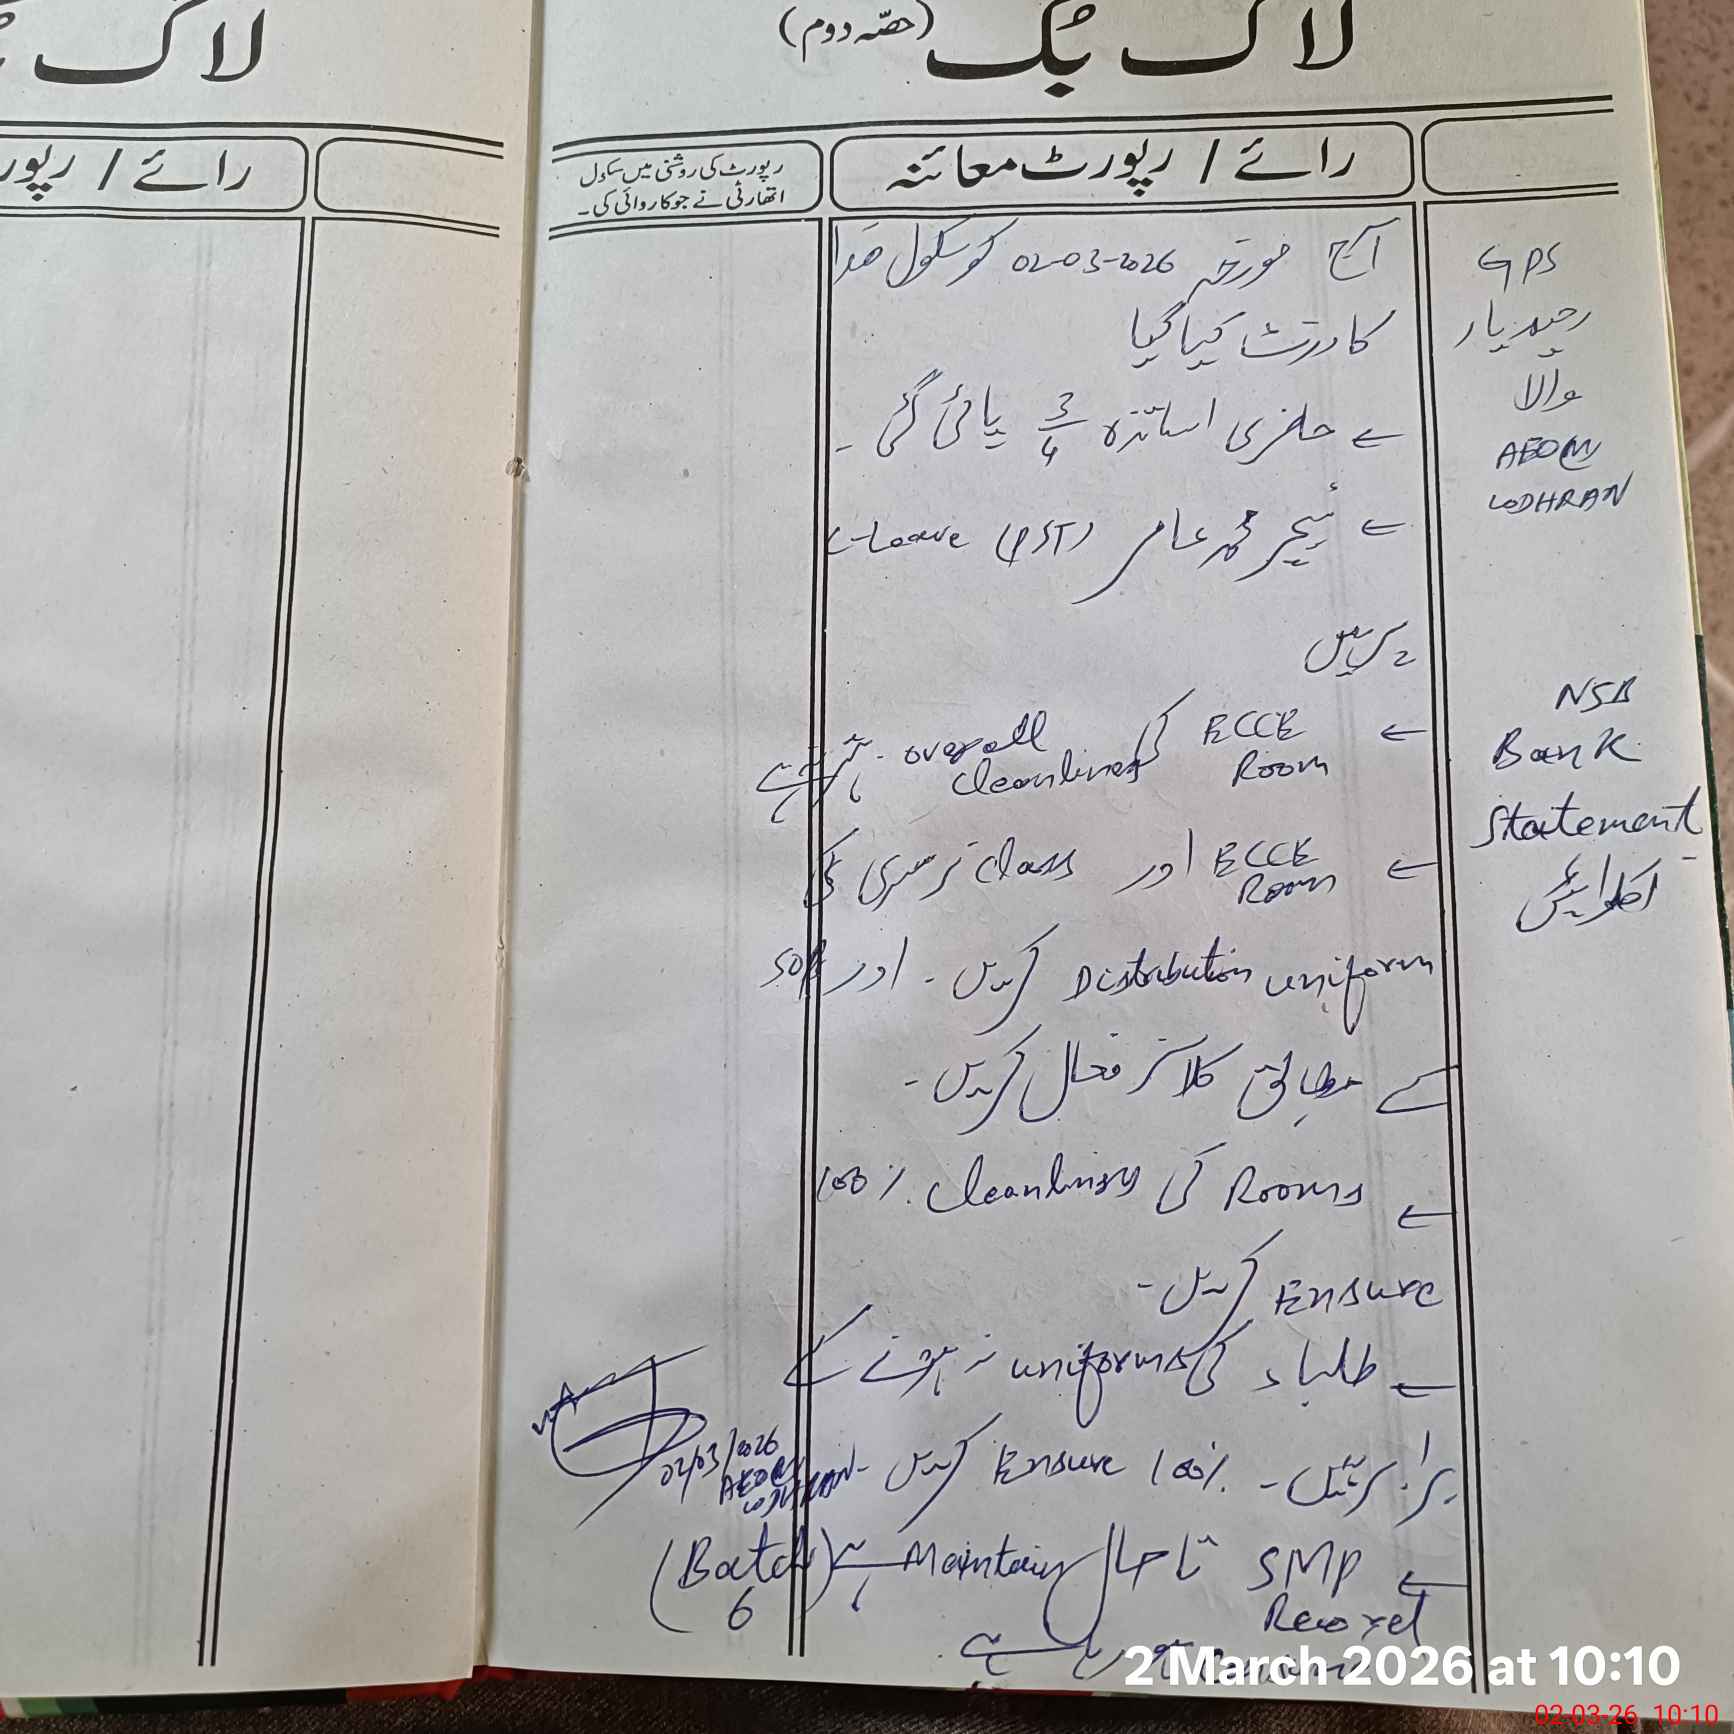 لاگ
لاگ بُک (حصّہ دوم)
رائے / رپور
رپورٹ کی روشنی میں سکول
اتھارٹی نے جو کاروائی کی۔
رائے / رپورٹ معائنہ
GPS
والا
AEO(M)
LODHRAN
NSB
Bank
Statement
آج مورخہ 02-03-2026 کو سکول ھذا
کا وزٹ کیا گیا
← حاضری اساتذہ 3/4 پائی گئی ۔
← ٹیچر محمد عامر (PST) C-Leave
← ECCE Room کی overall cleanliness بہتر ہے
← ECCE Room اور class نرسری کی
uniform Distribution کریں ۔ اور SOPs
کے مطابق کلاسز فعال کریں ۔
← Rooms کی cleanliness 100%
Ensure کریں ۔
← طلباء کی uniforms نہ ہونے کے
برابر ہیں ۔ 100% Ensure کریں ۔
02/03/2026
AEO(M)
LODHRAN
← SMP Record تاحال Maintain ہے (Batch 6)
رہا ہے
2 March 2026 at 10:10
02-03-26 10:10